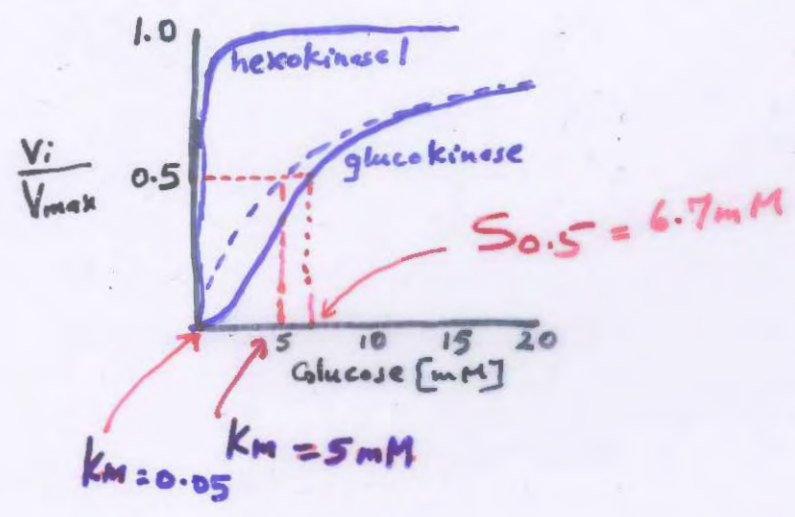 1.0
hexokinase 1
Vi
Vmax
0.5
glucokinase
S0.5 = 6.7mM
5 10 15 20
Glucose [mM]
Km = 5mM
Km = 0.05